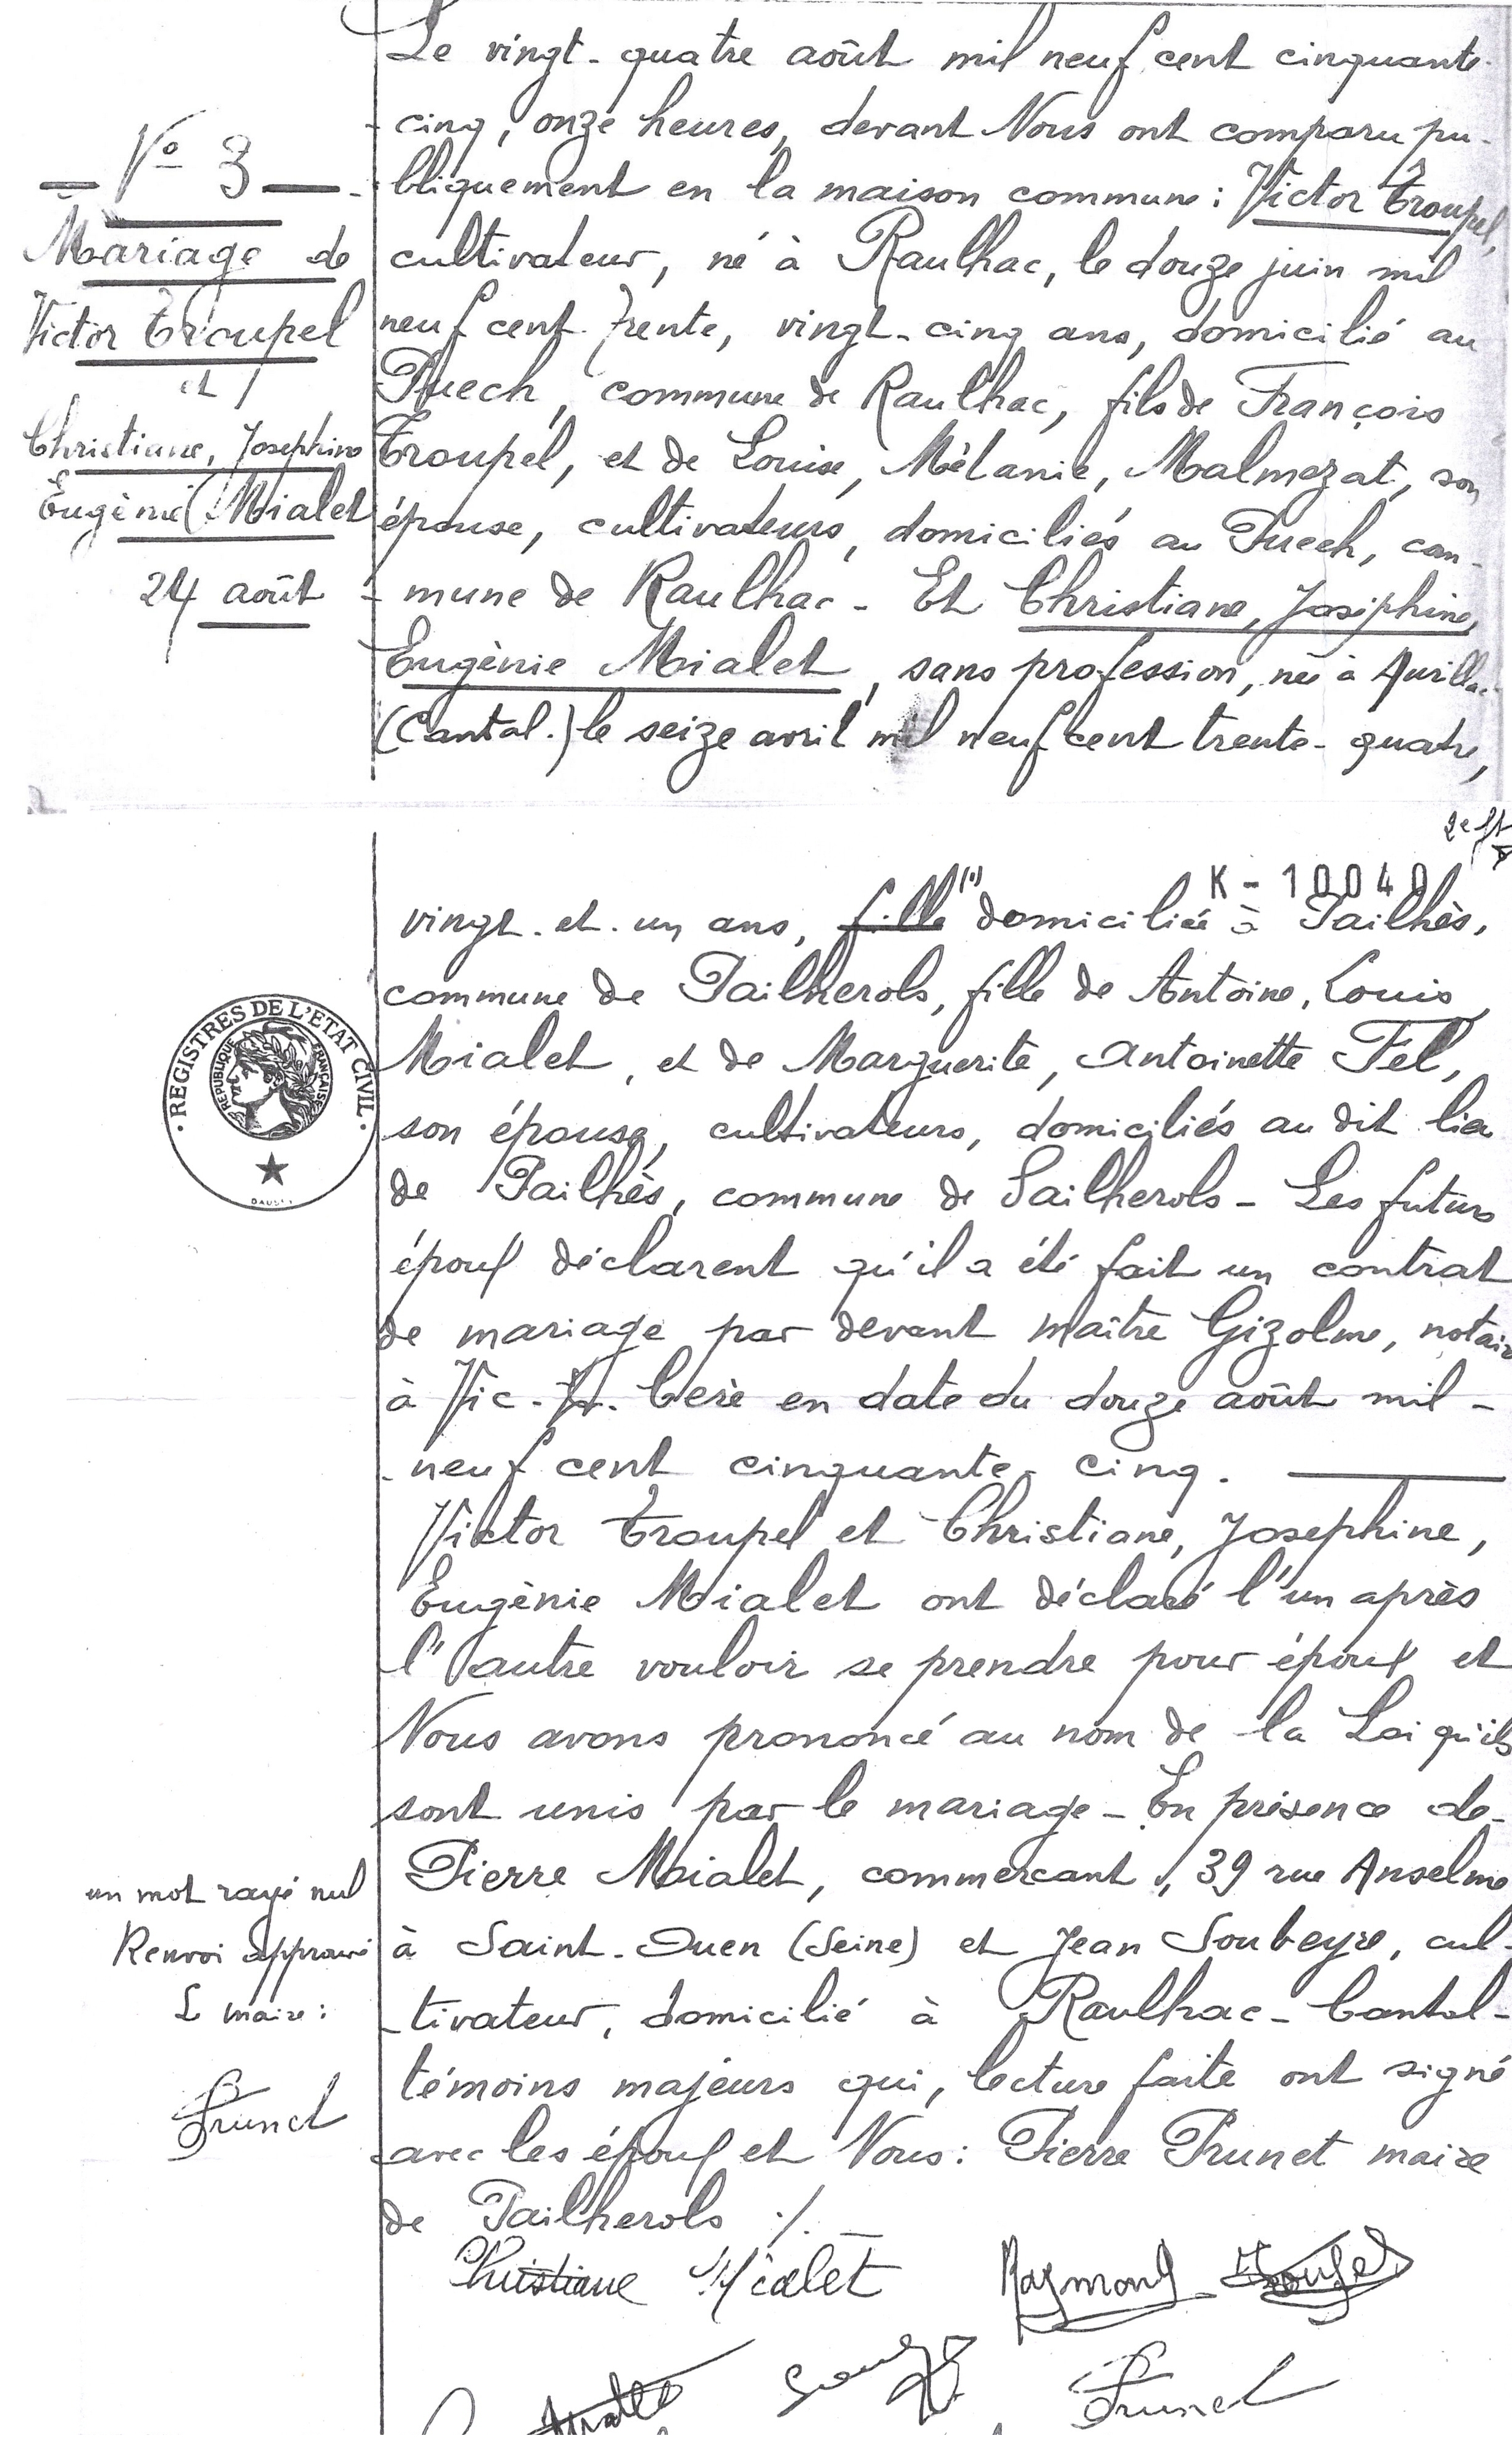 Le vingt-quatre août mil neuf cent cinquante-
-cinq, onze heures, devant Nous ont comparu pu-
bliquement en la maison commune : Victor Troupel,
cultivateur, né à Raulhac, le douze juin mil
neuf cent trente, vingt-cinq ans, domicilié au
Puech, commune de Raulhac, fils de François
Troupel, et de Louise, Mélanie, Malmezat, son
épouse, cultivateurs, domiciliés au Puech, com-
-mune de Raulhac - Et Christiane, Joséphine,
Eugènie Mialet, sans profession, née à Aurillac
(Cantal.) le seize avril mil neuf cent trente-quatre,
N° 3
Mariage de
Victor Troupel
et
Christiane, Josephine
Eugènie Mialet
24 août
K-10040
vingt-et-un ans, fille (1) domiciliée à Pailhès,
commune de Pailherols, fille de Antoine, Louis,
Mialet, et de Marguerite, Antoinette Fel,
son épouse, cultivateurs, domiciliés au dit lieu
de Pailhès, commune de Pailherols - Les futurs
époux déclarent qu'il a été fait un contrat
de mariage par devant maître Gizolme, notaire
à Vic-s.-Cère en date du douze août mil-
-neuf cent cinquante-cinq.
Victor Troupel et Christiane, Josephine,
Eugènie Mialet ont déclaré l'un après
l'autre vouloir se prendre pour époux et
Nous avons prononcé au nom de la Loi qu'ils
sont unis par le mariage - En présence de-
Pierre Mialet, commercant, 39 rue Anselme
à Saint-Ouen (Seine) et Jean Soubeyre, cul-
-tivateur, domicilié à Raulhac - Cantal -
témoins majeurs qui, lecture faite ont signé
avec les époux et Nous : Pierre Prunet maire
de Pailherols ./.
REGISTRES DE L'ETAT CIVIL
REPUBLIQUE FRANÇAISE
un mot rayé nul
Renvoi approuvé
Le maire :
Prunet
Christiane Mialet
Raymond Troupel
Prunet